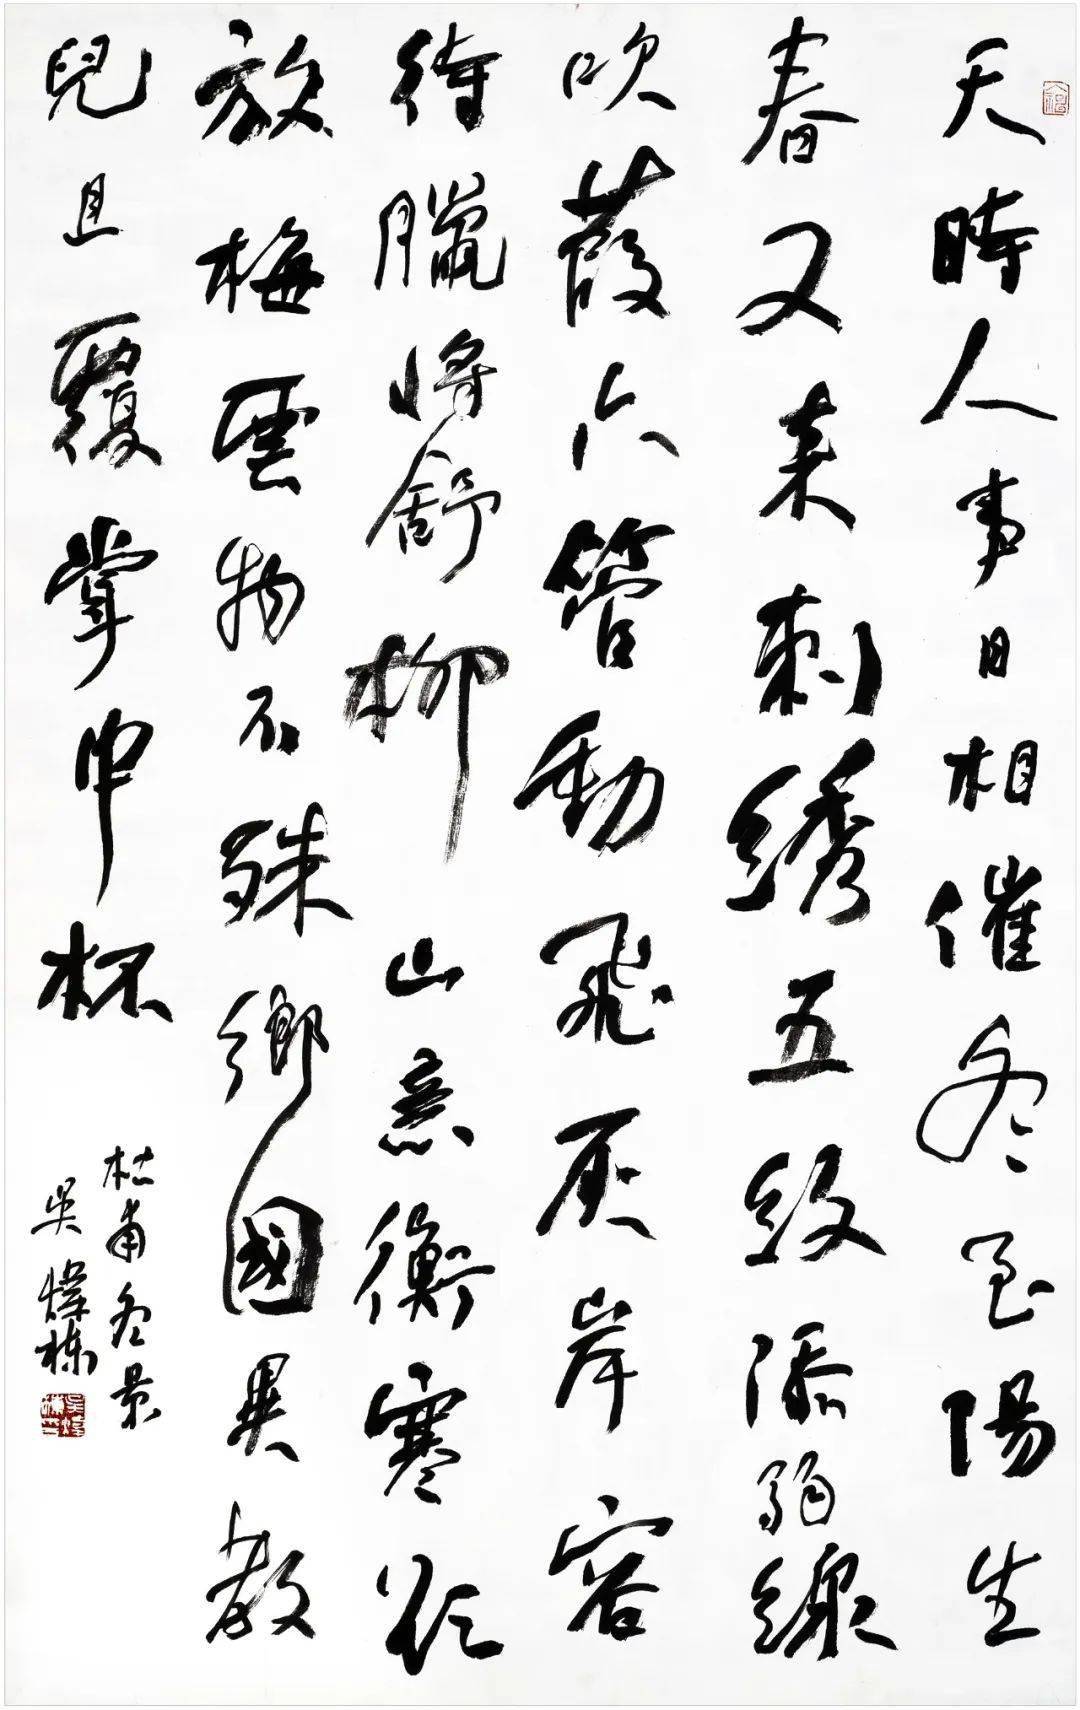 天時人事日相催冬至陽生
春又来刺綉五紋添弱線
吹葭六管動飛灰岸容
待臘將舒柳山意衝寒欲
放梅雲物不殊鄉國異教
兒且覆掌中杯
杜甫冬景
吴煒栋